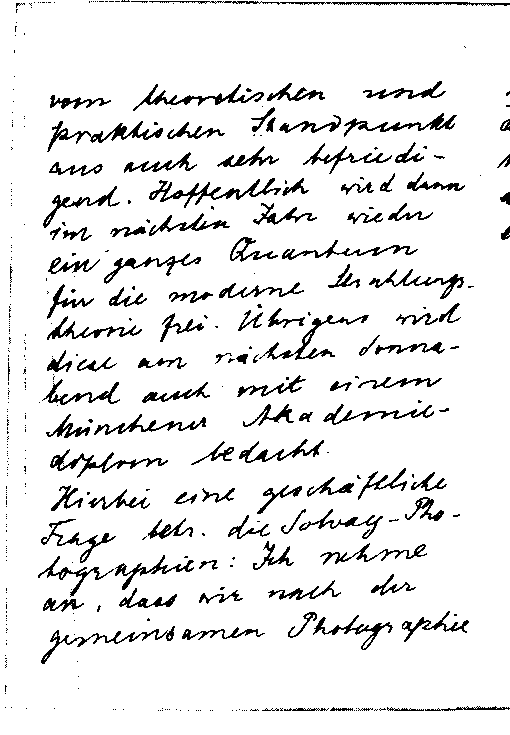 vom theoretischen und
praktischen Standpunkt
aus auch sehr befriedi-
gend. Hoffentlich wird dann
im nächsten Jahr wieder
ein ganzes Quantum
für die moderne Strahlungs-
theorie frei. Übrigens wird
diese am nächsten Sonna-
bend auch mit einem
Münchener Akademie-
diplom bedacht.
Hierbei eine geschäftliche
Frage betr. die Solvay-Pho-
tographien: Ich nehme
an, dass wir nach der
gemeinsamen Photographie